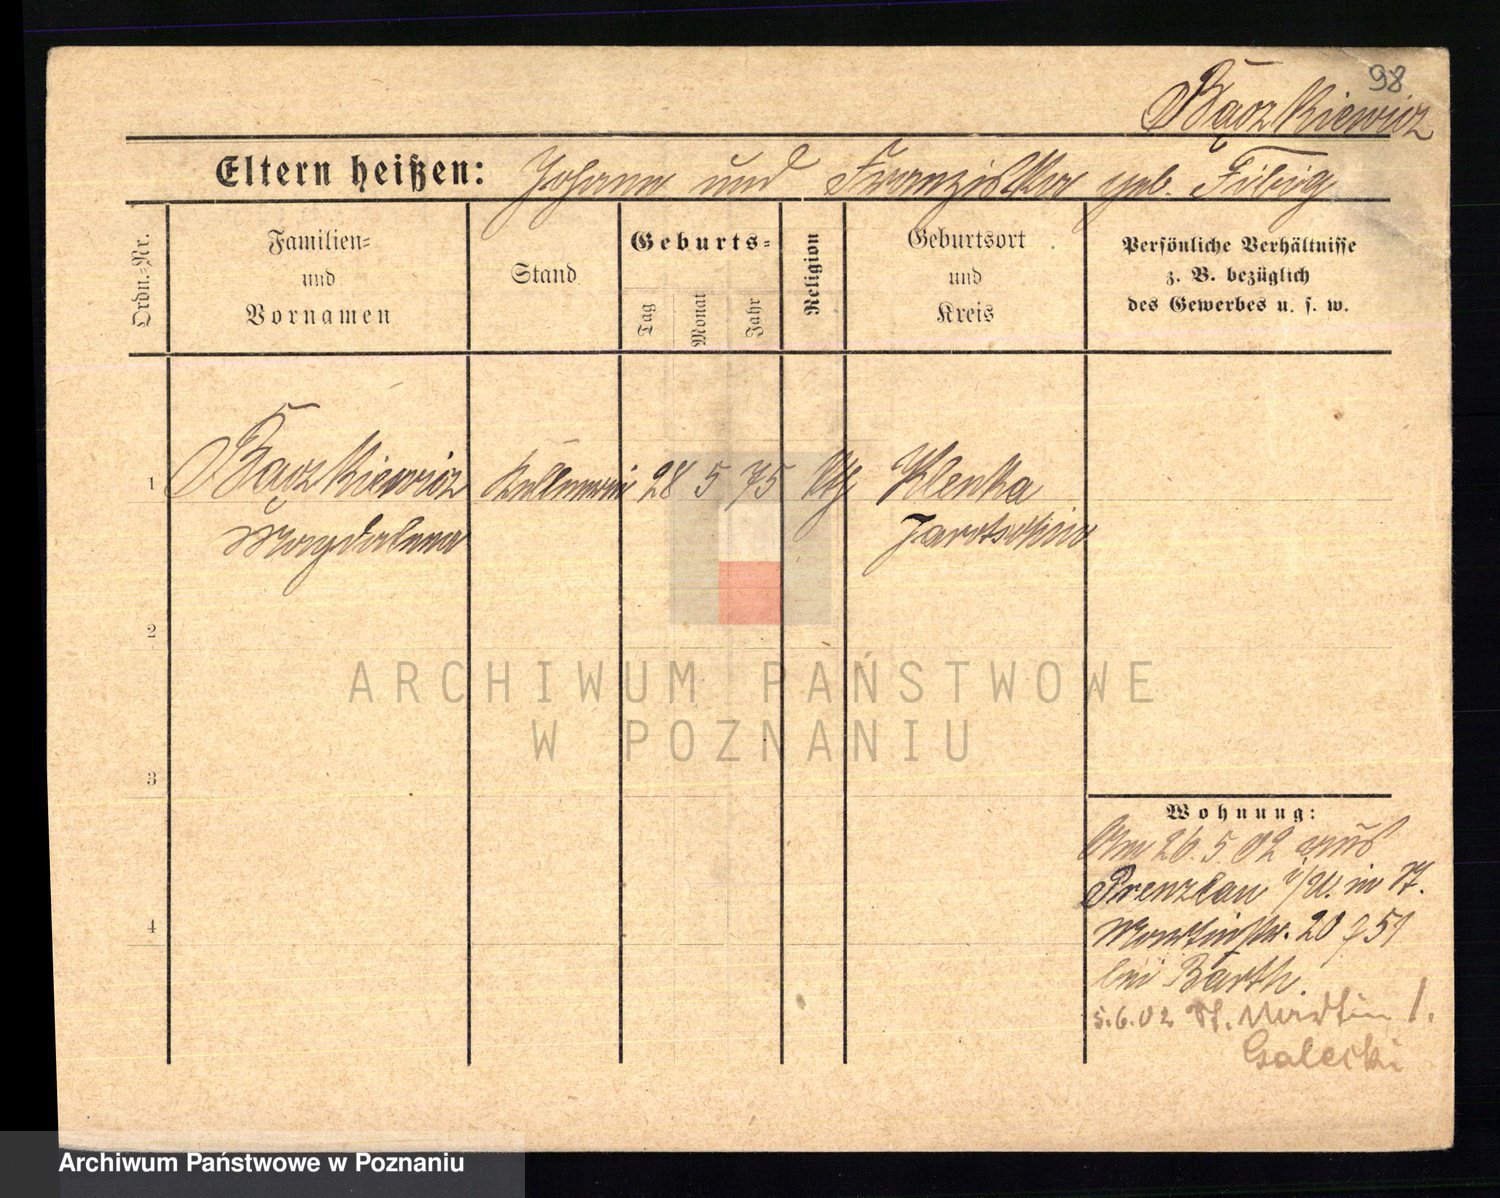 98
Bączkiewicz
Eltern heißen: Johann und Franziska geb. Fibig
Ordn.=Nr.
Familien=
und
Vornamen
Stand
Geburts=
Tag
Monat
Jahr
Religion
Geburtsort
und
Kreis
Persönliche Verhältnisse
z. B. bezüglich
des Gewerbes u. s. w.
1 Bączkiewicz Kellnerin 28 5 75 kth Klenka
Magdalena Jarotschin
2
ARCHIWUM PAŃSTWOWE
W POZNANIU
3
Wohnung:
Am 26.5.02 aus
Prenzlau i/U. in St.
4
Martinstr. 20
bei Barth.
5.6.02 St. Martin 1.
Galecki
Archiwum Państwowe w Poznaniu